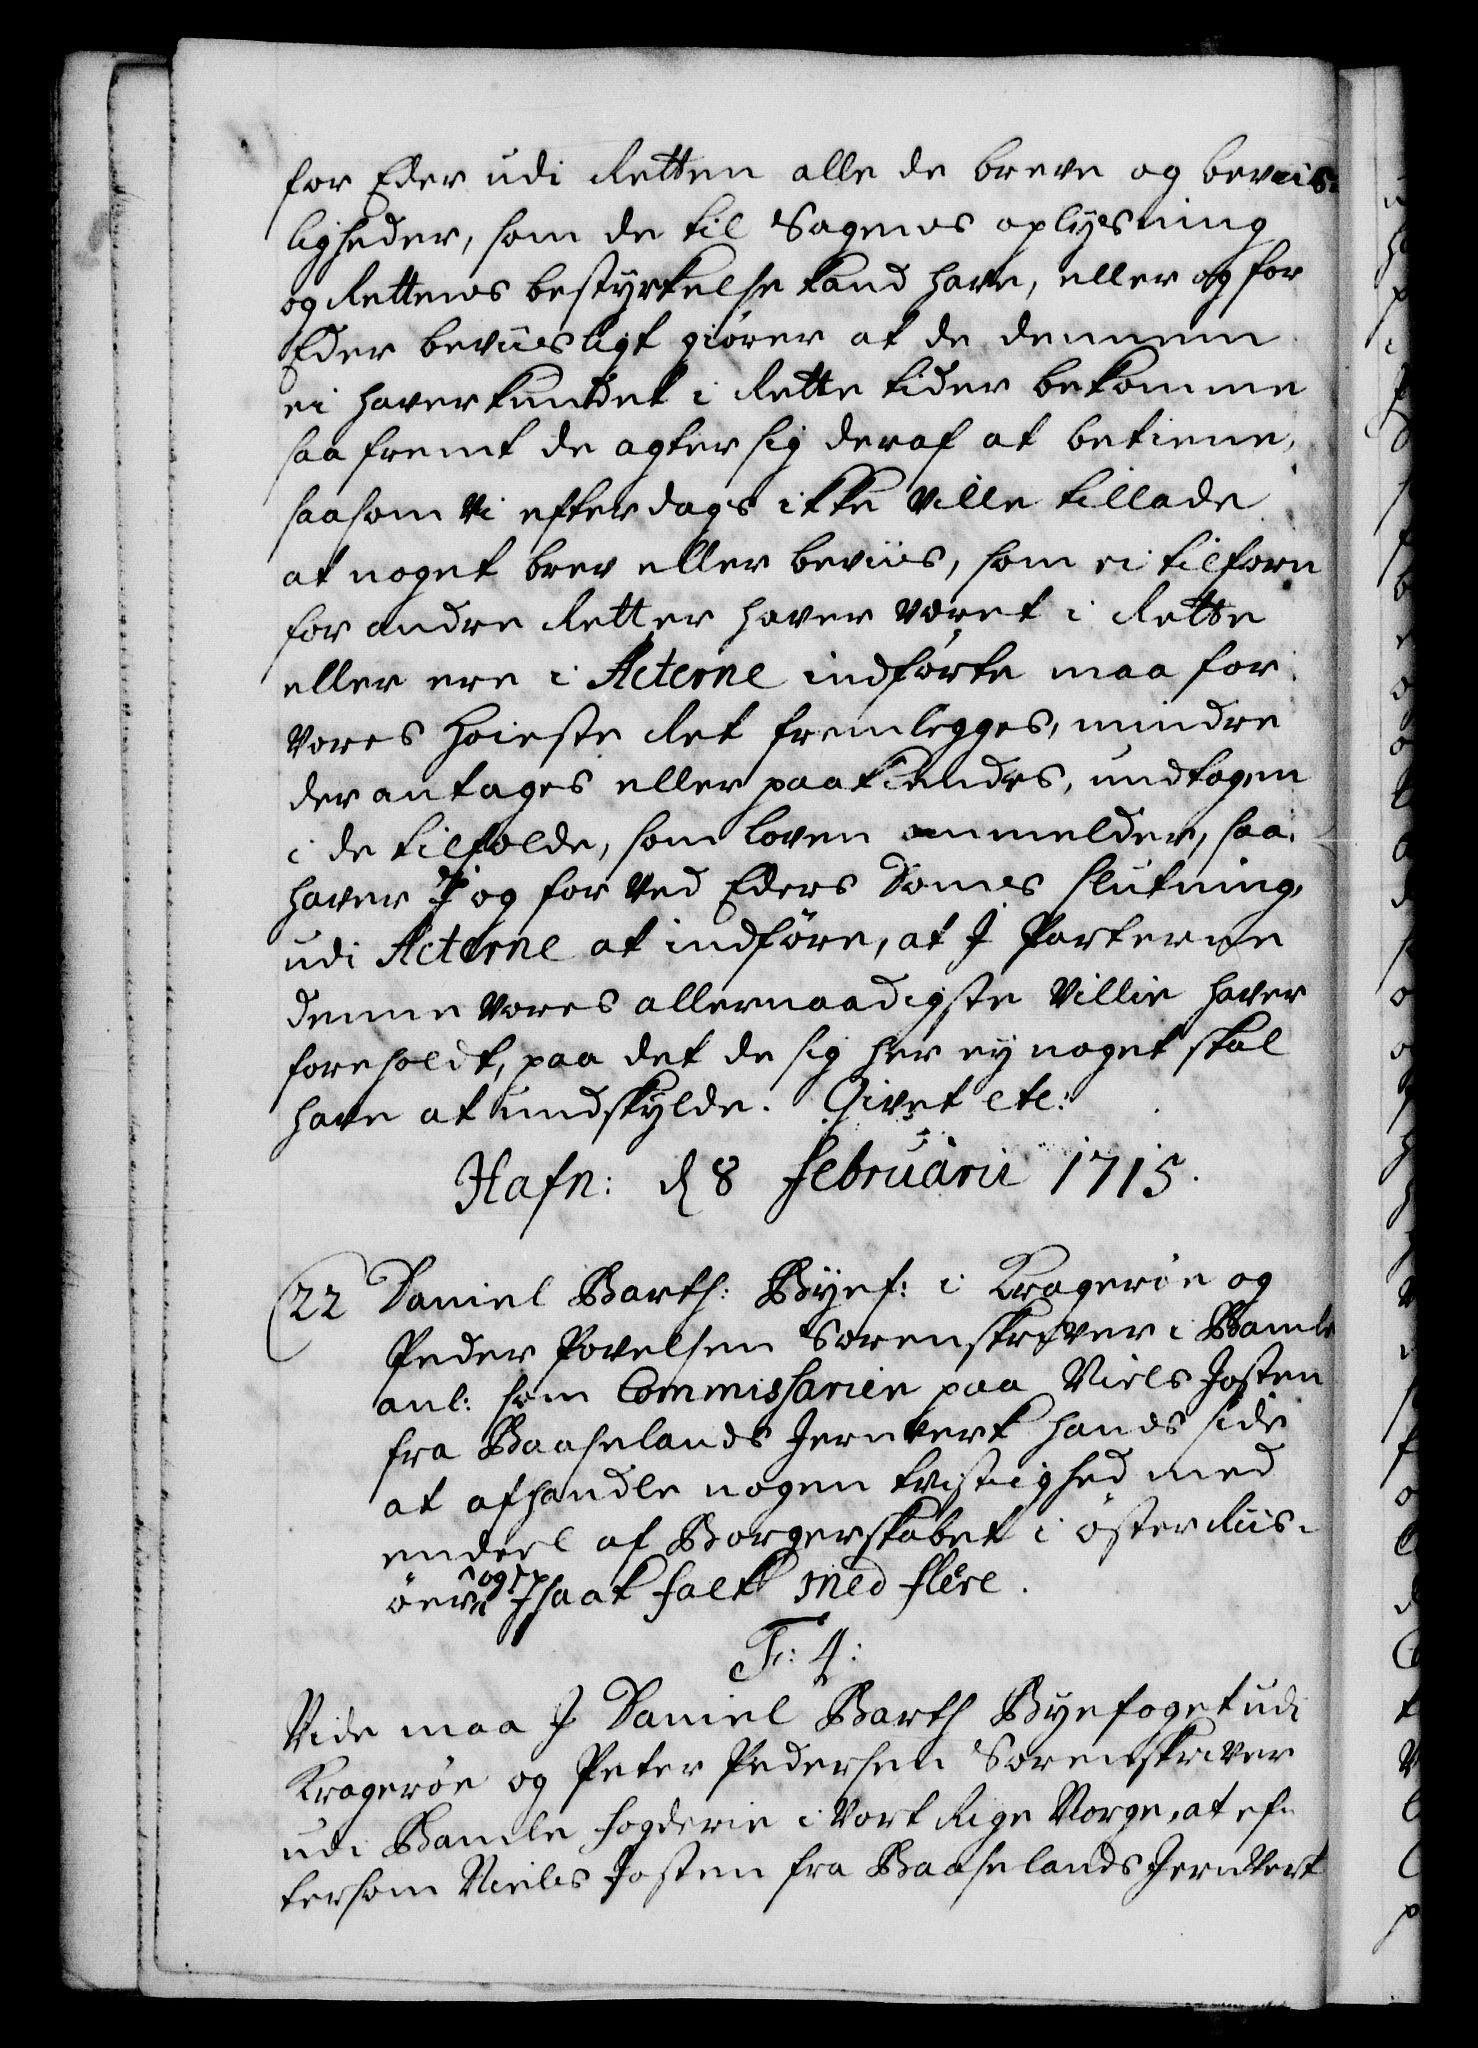 for Eder udi Retten alle de breve og beviis-
ligheder, som de til Sagens oplysning
og Rettens bestyrkelse kand have, eller og for
Eder beviisligt giører at de dennem
ei haver kundet i Rette tider bekomme
saa fremt de agter sig deraf at betiene,
saasom Vi efterdags ikke Ville tillade
at noget brev eller beviis, som ei tilforn
for andre Retter haver været i Rette
eller ere i Acterne indførte maa for
Vores Høieste Ret fremlegges, mindre
der antages eller paakiendes, undtagen
i de tilfælde, som loven ommelder, saa
haver J og for ved Eders Domes slutning,
udi Acterne at indføre, at J Parterne
denne Vores allernaadigste Villie haver
foreholdt, paa det de sig her ey noget skal
have at undskylde. Givet etc:
Hafn: d 8 Februarii 1715.
22 Daniel Barth: Byef: i Kragerøe og
Peder Povelsen Sorenskriver i Bamle
anl: som Commissarier paa Niels Josten
fra Baaselands Jernverk hands side
at afhandle nogen tvistighed med
endeel af Borgerskabet i Øster Riis-
øer og Jsaak Falk med flere.
Fr: 4:
Vide maa J Daniel Barth Byefoget udi
Kragerøe og Peter Pedersen Sorenskriver
udi Bamle fogderie i Vort Rige Norge, at ef-
tersom Niels Josten fra Baaselands Jernverk